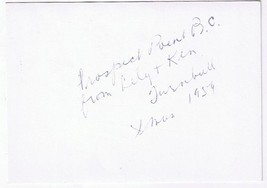 Prospect Point B.C.
from Lily + Ken
Turnbull
Xmas 1959